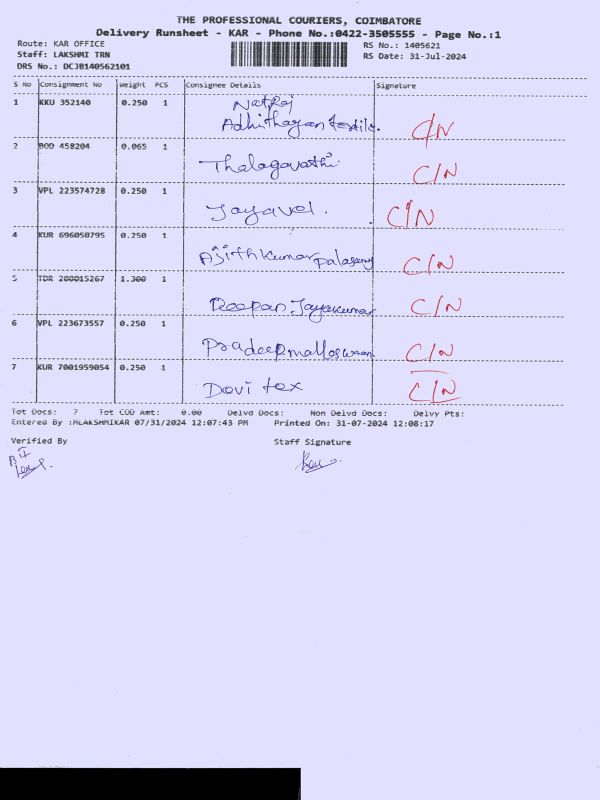 THE PROFESSIONAL COURIERS, COIMBATORE
Delivery Runsheet - KAR - Phone No.:0422-3505555 - Page No.:1
Route: KAR OFFICE RS No.: 1405621
Staff: LAKSHMI TRN RS Date: 31-Jul-2024
DRS No.: DCJB140562101
S No Consignment No Weight PCS Consignee Details Signature
1 KKU 352140 0.250 1 Natraj
Adhithayan textile. C/N
2 BOD 458204 0.065 1
Thalagavathi C/N
3 VPL 223574728 0.250 1
Jayavel. C/N
4 KUR 696050795 0.250 1
Ajith Kumar C/N
5 TDR 200015267 1.300 1
Deepan Jayakumar C/N
6 VPL 223673557 0.250 1
C/N
7 KUR 7001959054 0.250 1
Dovi tex C/N
Tot Docs: 7 Tot COD Amt: 0.00 Delvd Docs: Non Delvd Docs: Delvy Pts:
Entered By :HLAKSHMIKAR 07/31/2024 12:07:43 PM Printed On: 31-07-2024 12:08:17
Verified By Staff Signature